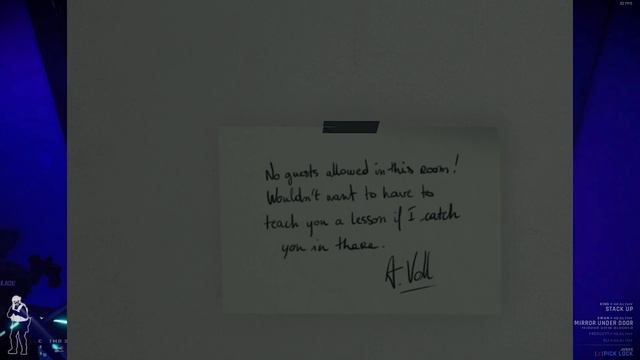 No guests allowed in this room!
Wouldn't want to have to
teach you a lesson if I catch
you in there.
A. Voll
STACK UP
MIRROR UNDER DOOR
PICK LOCK